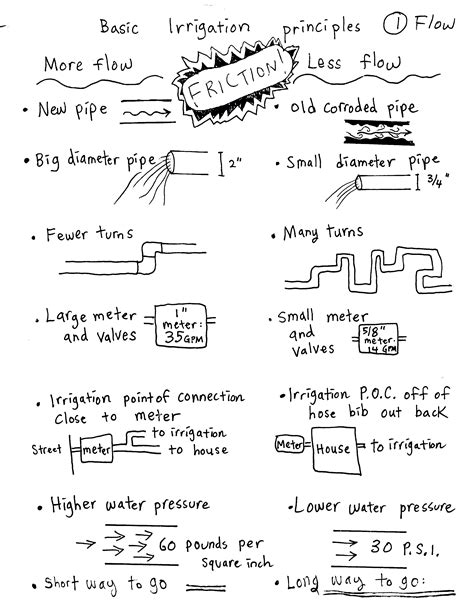 Basic Irrigation principles ① Flow
More flow
FRICTION!
Less flow
• New pipe
• Old corroded pipe
• Big diameter pipe 2"
• Small diameter pipe 3/4"
• Fewer turns
• Many turns
• Large meter
and valves
1"
meter:
35 GPM
• Small meter
and
valves
5/8"
meter.
14 GPM
• Irrigation point of connection
close to meter
Street meter
to irrigation
to house
• Irrigation P.O.C. off of
hose bib out back
Meter House to irrigation
• Higher water pressure
60 pounds per
square inch
• Lower water pressure
30 P.S.I.
• Short way to go
• Long way to go: